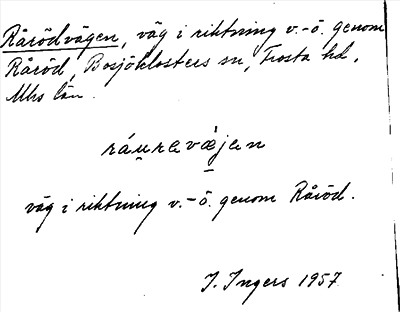 Rårödvägen, väg i riktning v.-ö. genom
Råröd, Bosjöklosters sn, Frosta hd,
Mhs län.
ráu̠rava̠̍jan
väg i riktning v.-ö. genom Råröd.
I. Ingers 1957